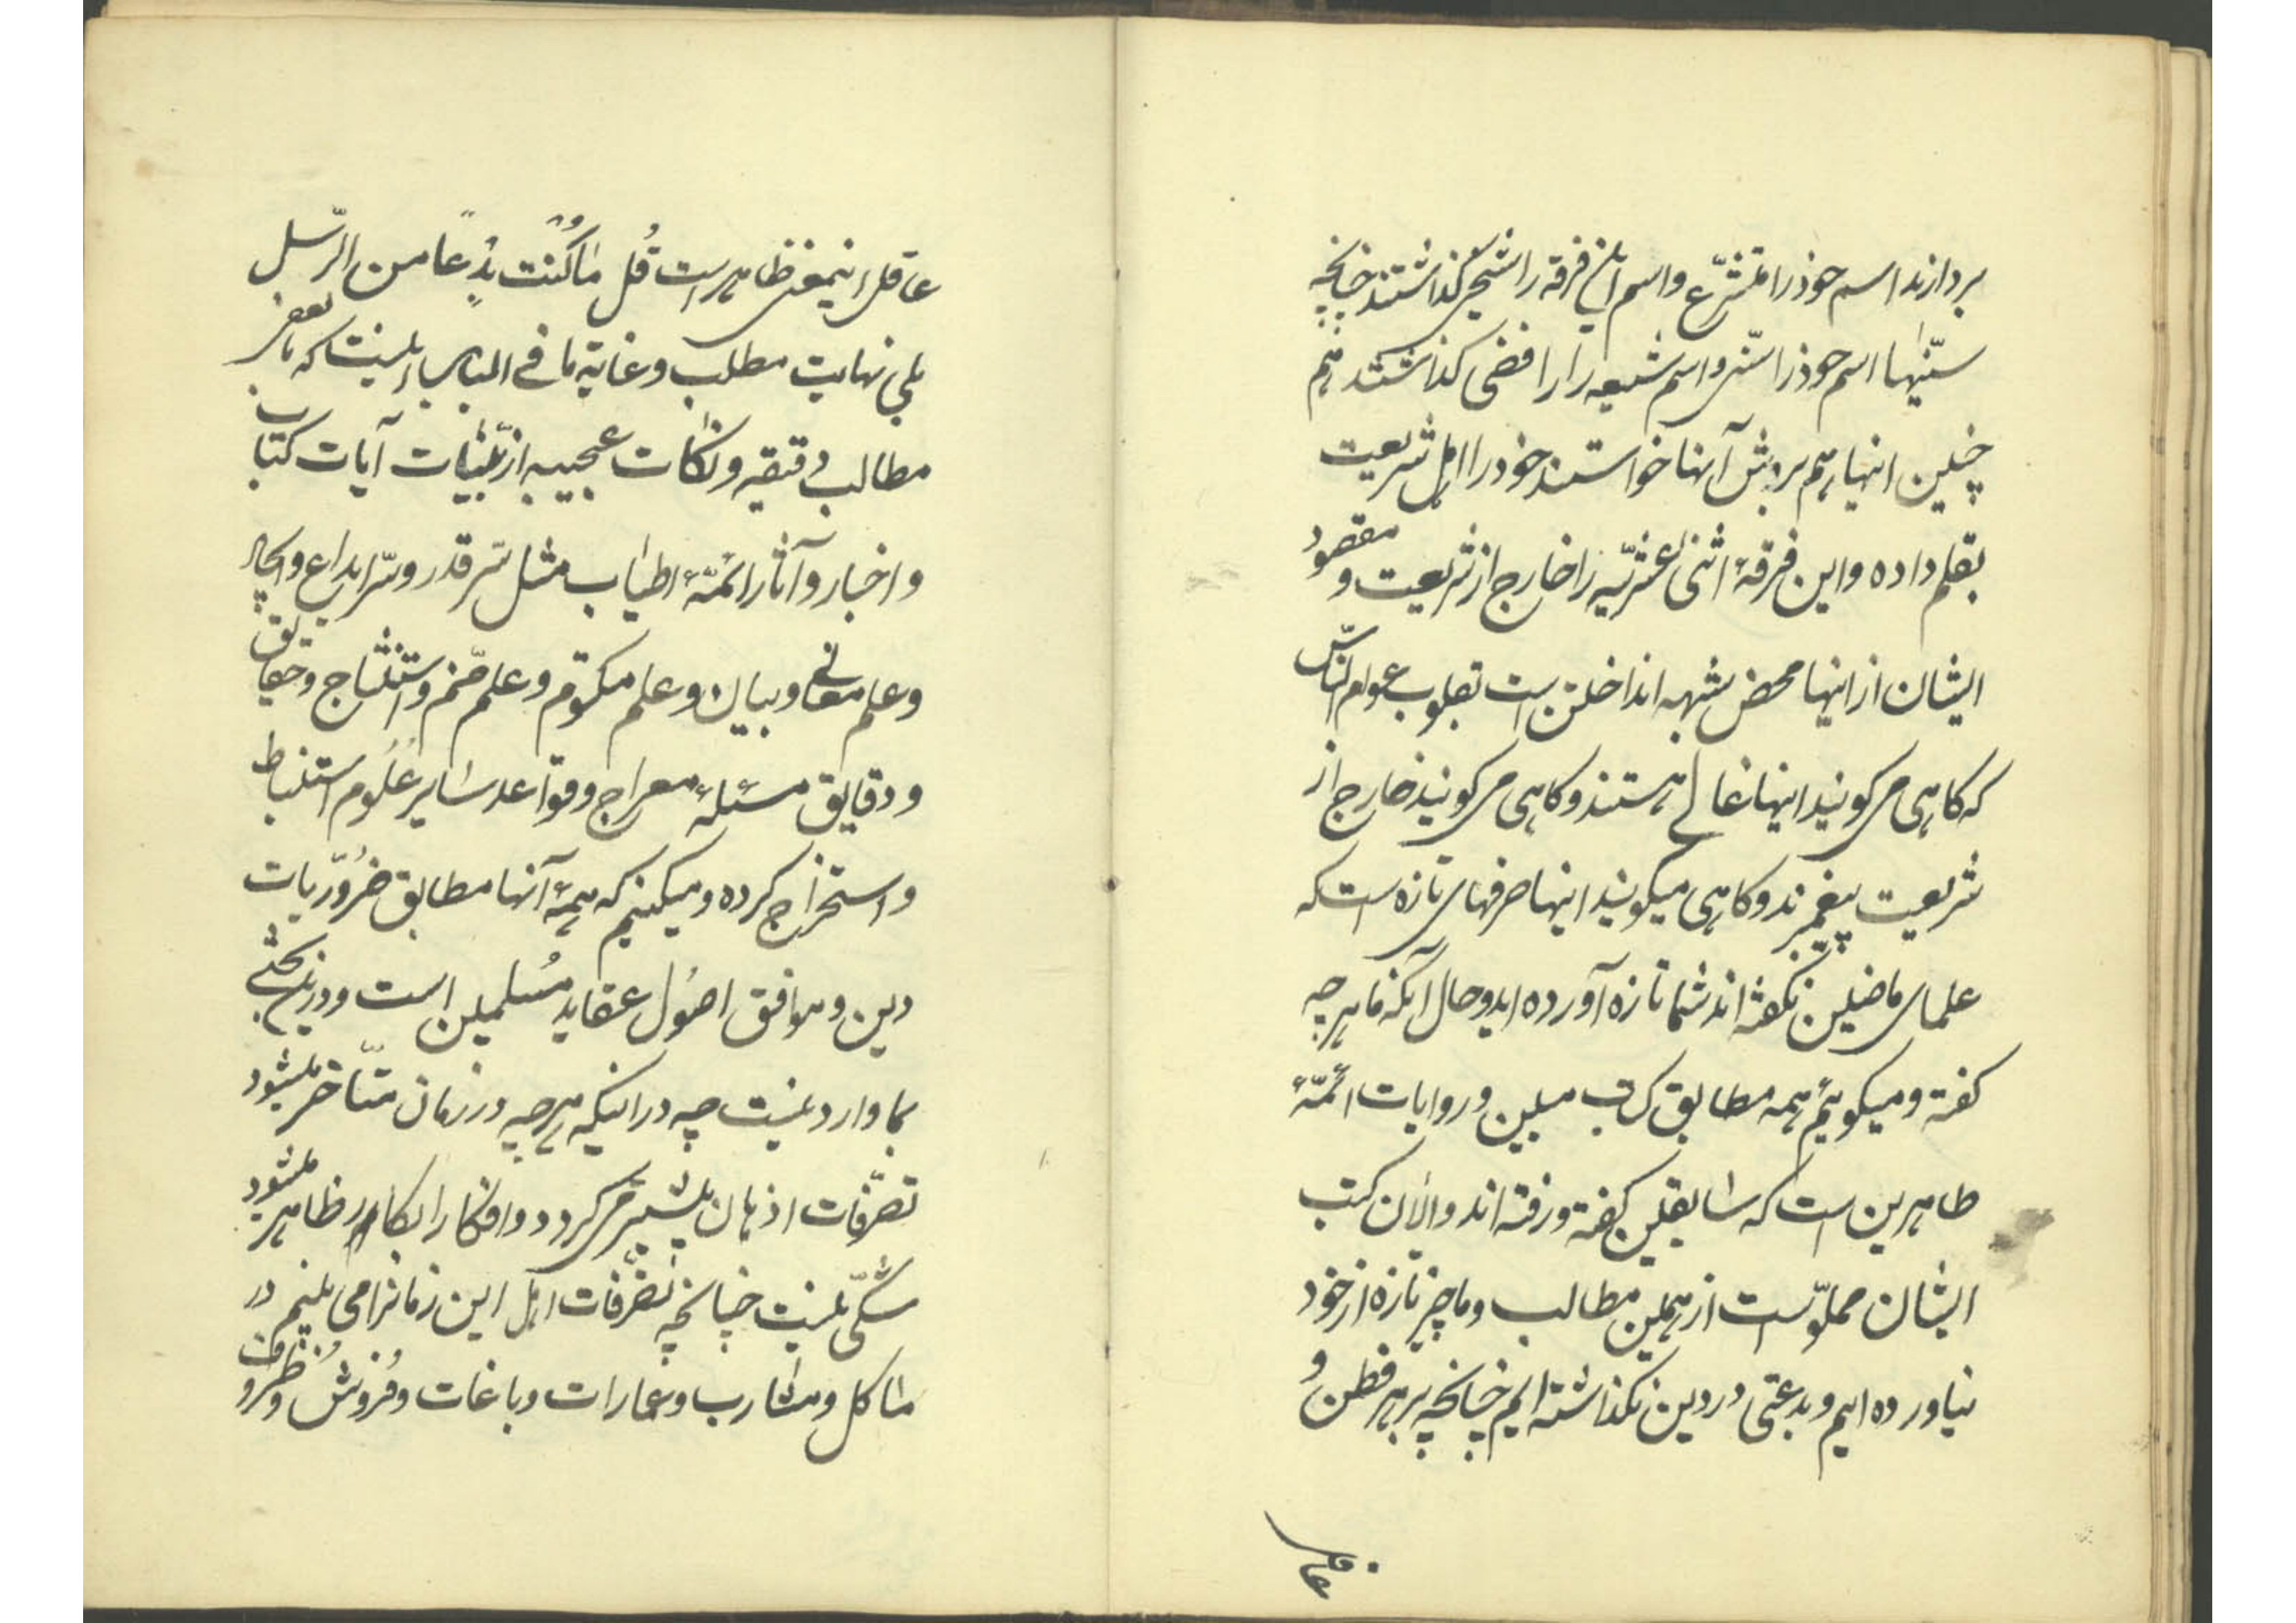 بردازند اسم خود را متشرّع و اسم این فرقه را شیخی گذاشتند چنانچه
سنّیها اسم خود را سنّی و اسم شیعه را رافضی گذاشتند هم
چنین اینها هم بروش آنها خواستند خود را اهل شریعت
بقلم داده و این فرقهٔ اثنی عشریّه را خارج از شریعت و مقصود
ایشان از اینها محض شبهه انداختن است بقلوب عوام النّاس
که کاهی می کویند اینها غالی هستند و کاهی می کویند خارج از
شریعت پیغمبرند و کاهی میکویند اینها حرفهای تازه است که
علمای ماضین نکفته اند شما تازه آورده اید و حال آنکه ما هر چه
کفته و میکوئیم همه مطابق کتاب مبین و روایات ائمّهٔ
طاهرین است که سابقین کفته و رفته اند و الآن کتب
ایشان مملوّ است از همین مطالب و ما چیز تازه از خود
نیاورده ایم و بدعتی در دین نکذاشته ایم چنانچه بر هر فطن و
عاقل
عاقل اینمعنی ظاهر است قُل مٰا کُنْت بِدْعًا من الرّسل
بلی نهایت مطلب و غایة ما فی الباب اینست که ما بعضی
مطالب دقیقه و نکات عجیبه از بیّنات آیات کتاب
و اخبار و آثار ائمّهٔ اطیاب مثل سّر قدر و سّر ابداع و ایجاد
و علم معانی و بیان و علم مکتوم و علم صّنم و استنتاج و حقایق
و دقایق مسئلهٔ معراج و قواعد سایر عُلُوم استنباط
و استخراج کرده و میکنیم که همهٔ آنها مطابق ضرُوریّات
دین و موافق اصُول عقاید مُسلمین است و در این بحثی
بما وارد نیست چه در اینکه هر چه در زمان متأخر میشود
تصرّفات اذهان بیشتر می کردد و افکار ابکار ظاهر میشود
شکّی نیست چنانچه تصرّفات اهل این زمانرا می بینیم در
مٰاکل و مشارب و عمارات و باغات و فُروش و ظروف